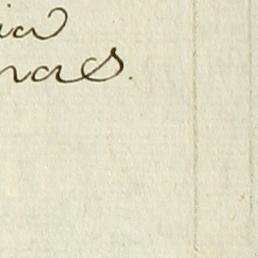 ia
nas.